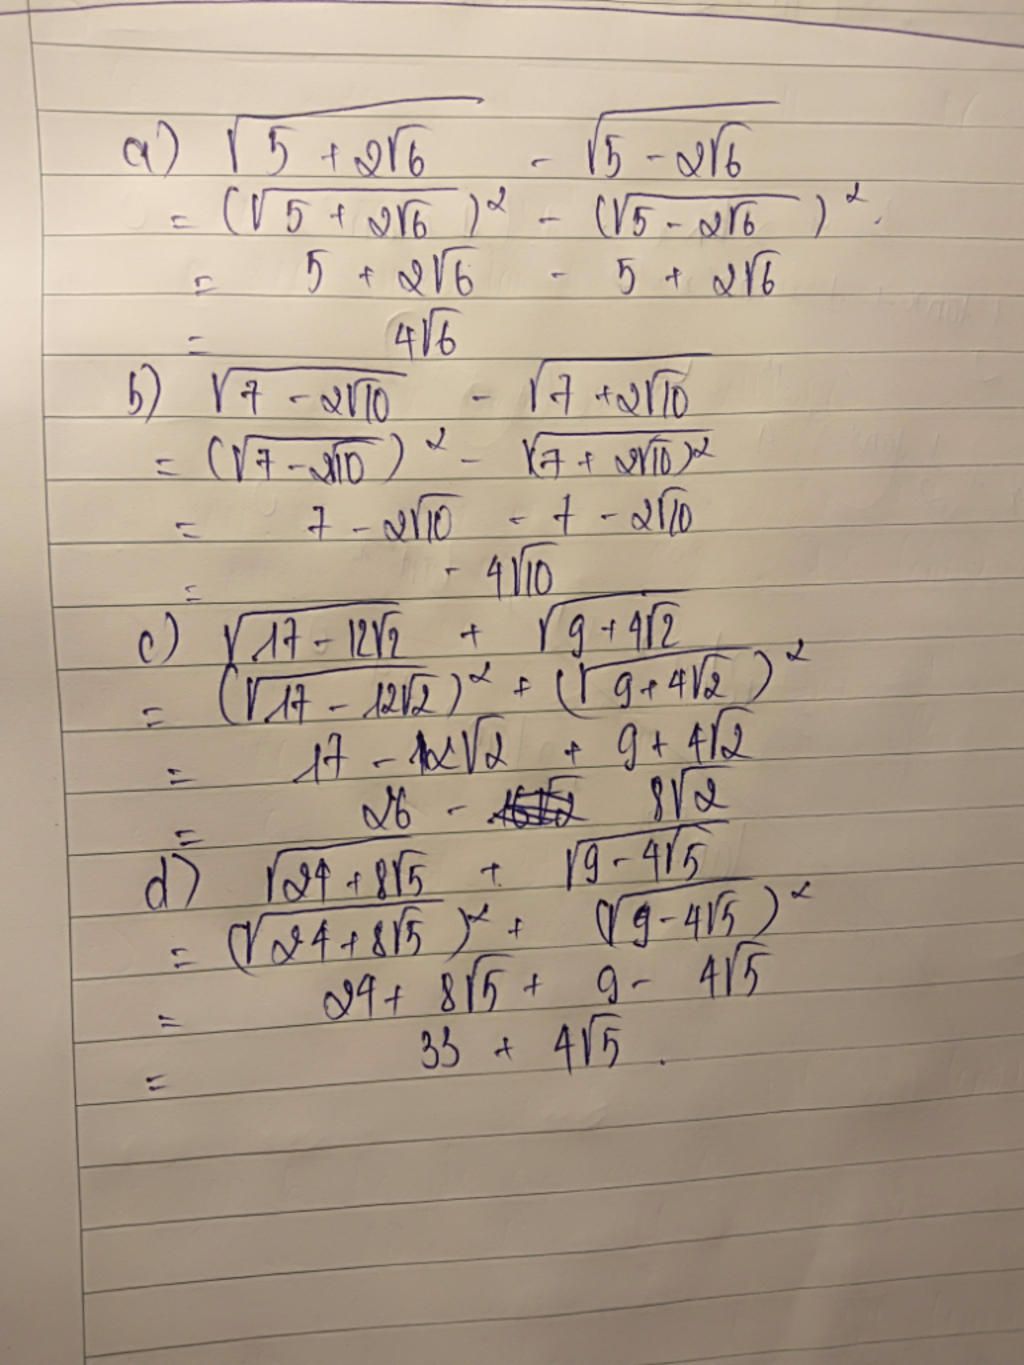 a) √(5 + 2√6) - √(5 - 2√6)
= (√(5 + 2√6))² - (√(5 - 2√6))².
= 5 + 2√6 - 5 + 2√6
= 4√6
b) √(7 - 2√10) - √(7 + 2√10)
= (√(7 - 2√10))² - (√(7 + 2√10))²
= 7 - 2√10 - 7 - 2√10
= - 4√10
c) √(17 - 12√2) + √(9 + 4√2)
= (√(17 - 12√2))² + (√(9 + 4√2))²
= 17 - 12√2 + 9 + 4√2
= 26 - 8√2
d) √(24 + 8√5) + √(9 - 4√5)
= (√(24 + 8√5))² + (√(9 - 4√5))²
= 24 + 8√5 + 9 - 4√5
= 33 + 4√5.